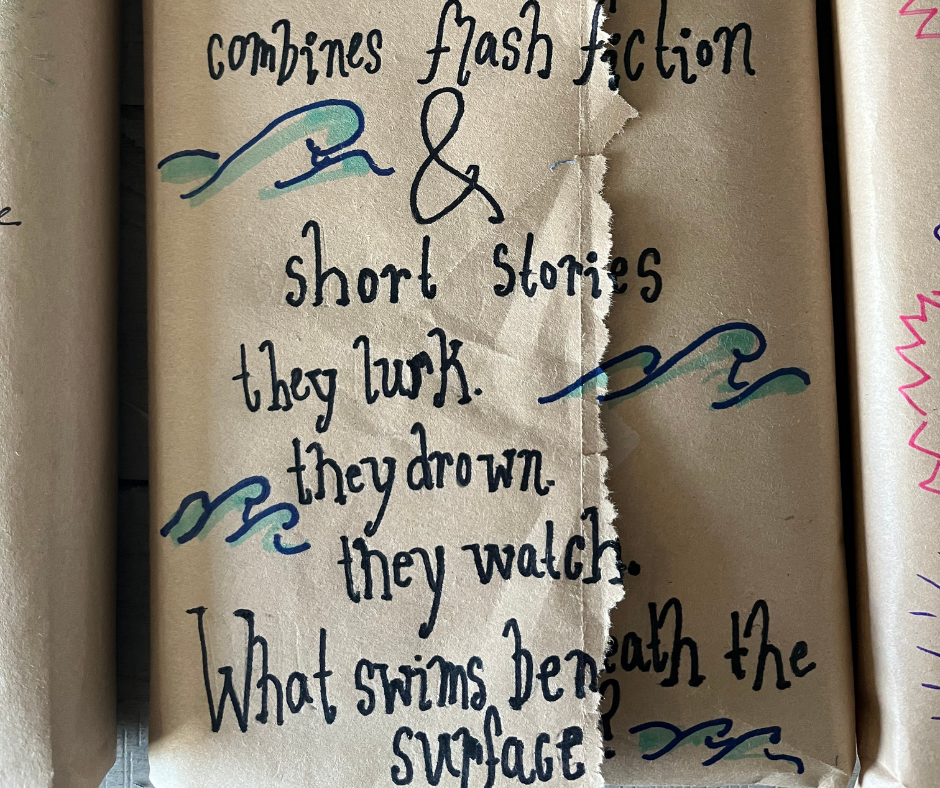 combines flash fiction
&
short stories
they lurk.
they drown.
they watch.
What swims beneath the
surface?